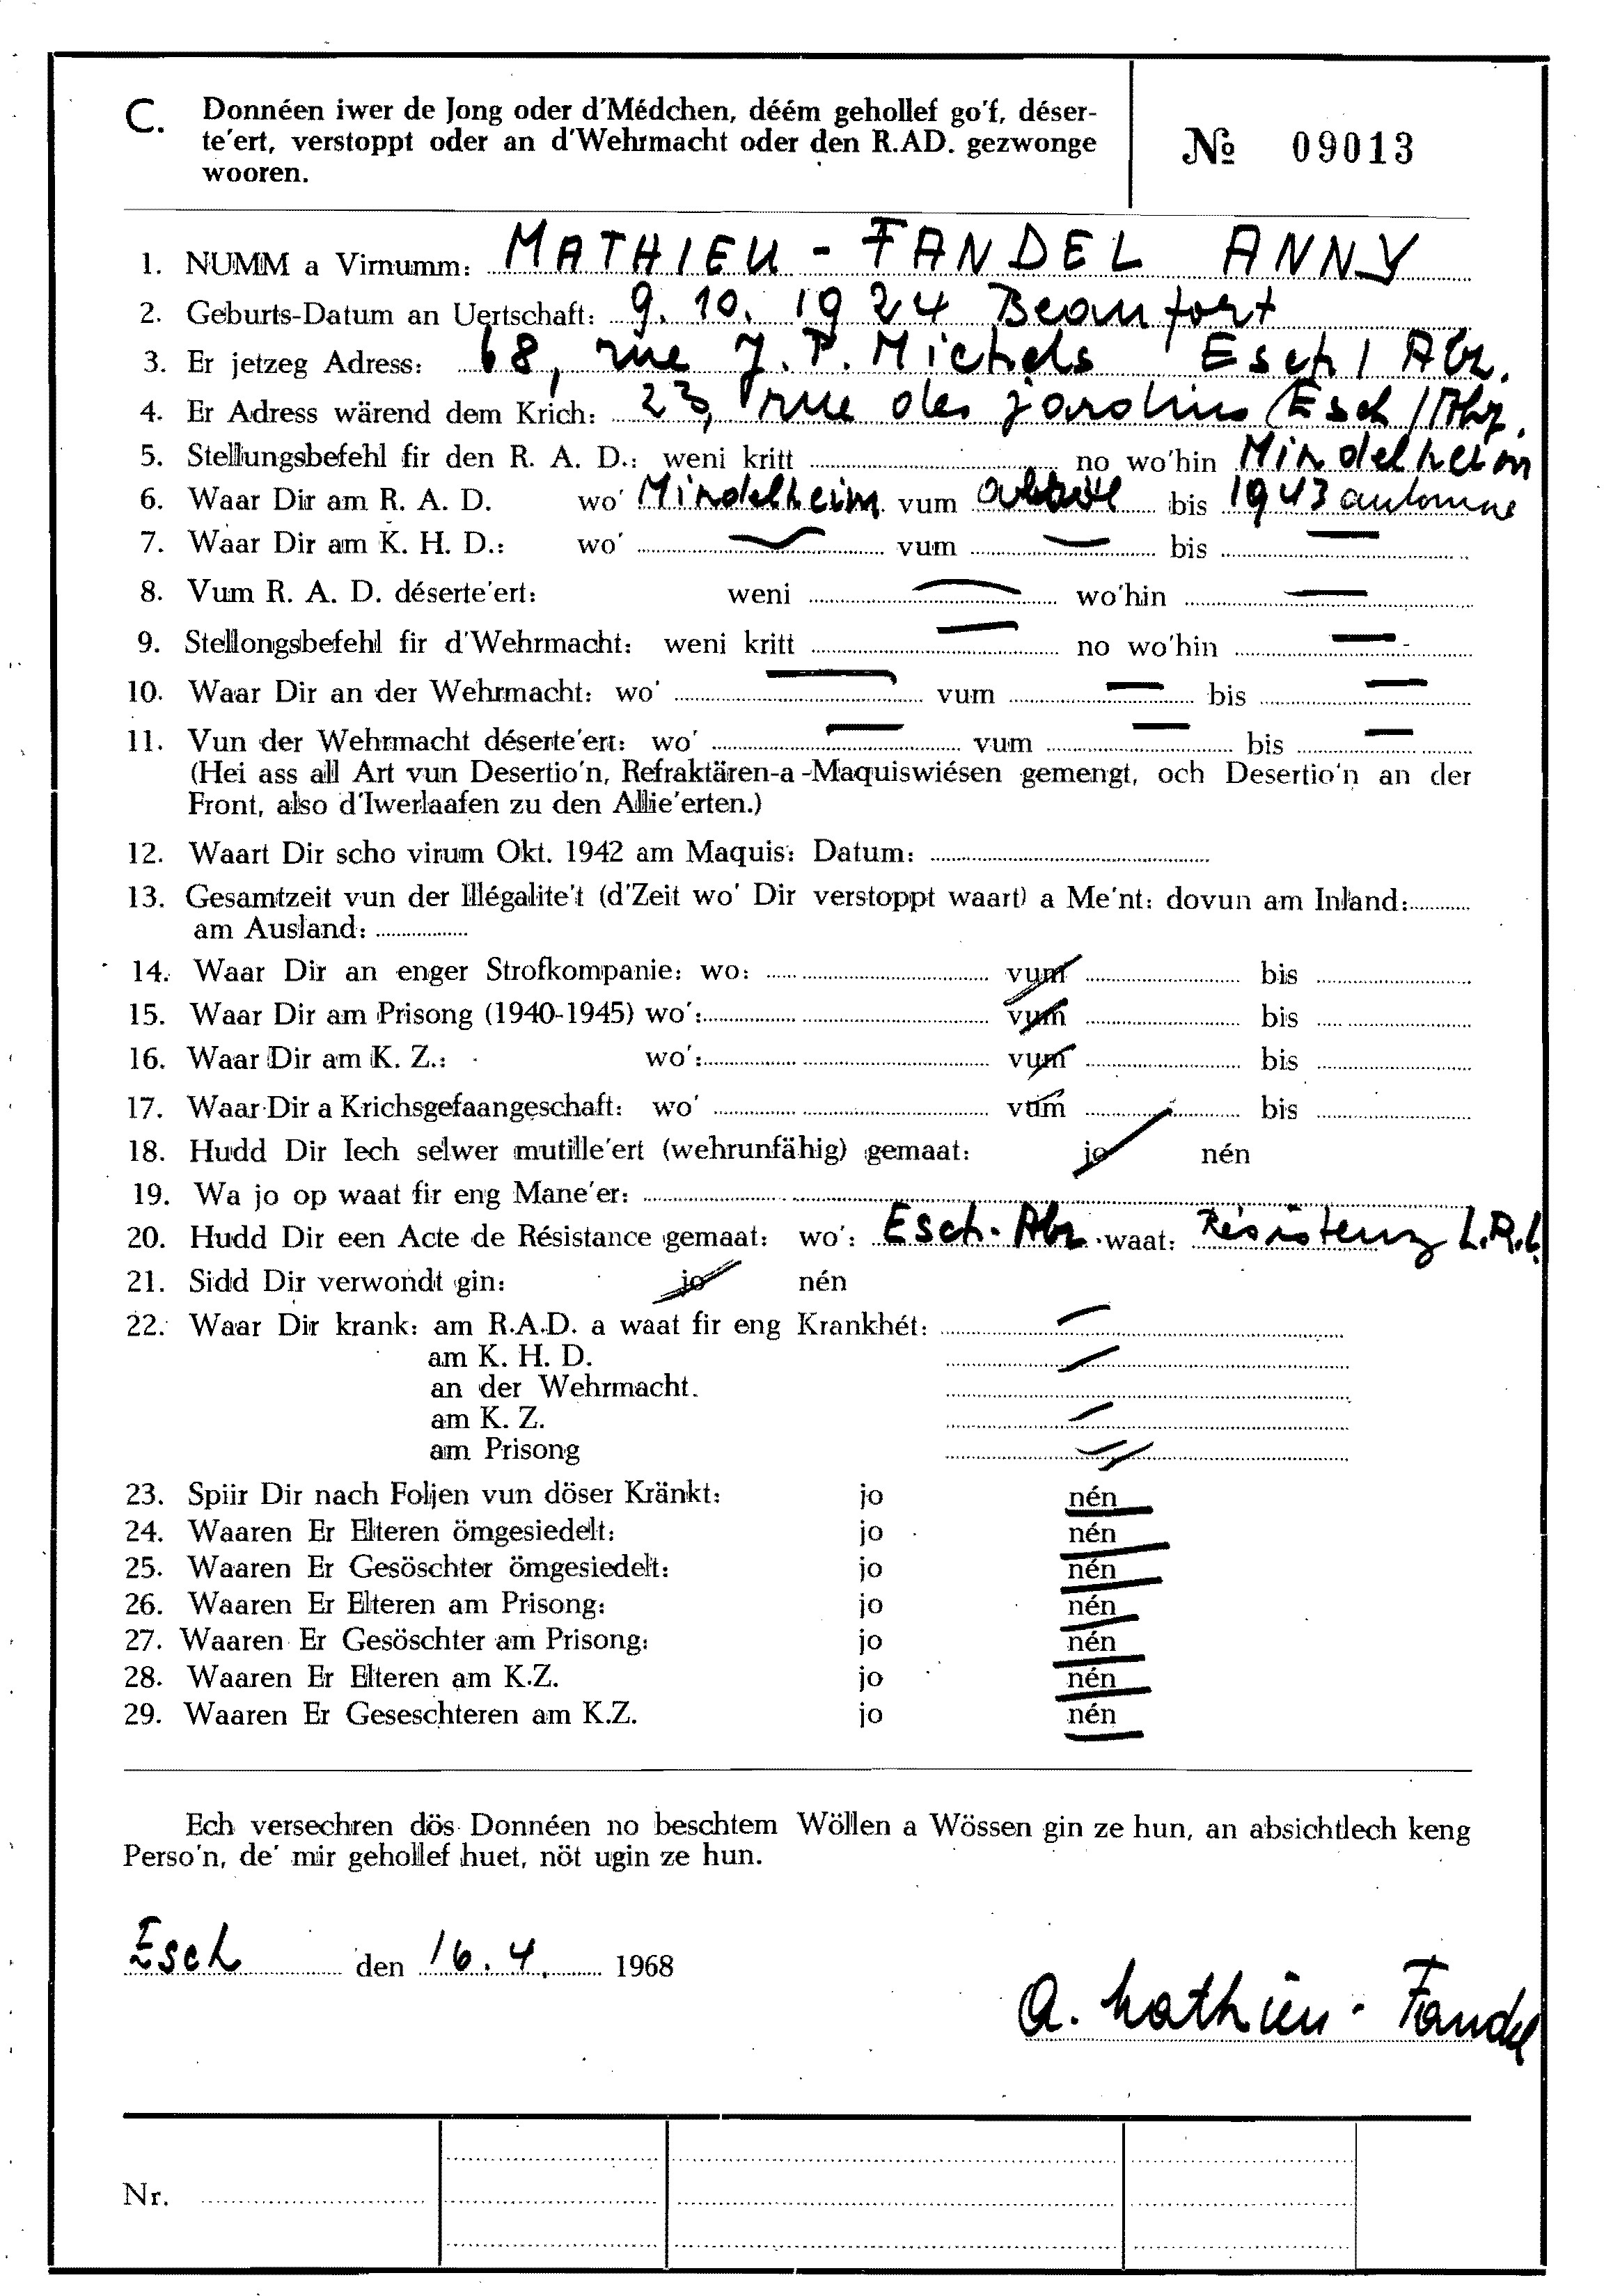 C. Donnéen iwer de Jong oder d'Médchen, déém gehollef go'f, déser-
te'ert, verstoppt oder an d'Wehrmacht oder den R.AD. gezwonge
wooren.
№ 09013
1. NUMM a Virnumm: MATHIEU - FANDEL ANNY
2. Geburts-Datum an Uertschaft: 9. 10. 1924 Beaufort
3. Er jetzeg Adress: 68, rue J. P. Michels Esch / Alz.
4. Er Adress wärend dem Krich: 23, rue des jardins Esch / Alz.
5. Stellungsbefehl fir den R. A. D.: weni kritt no wo'hin Mindelheim
6. Waar Dir am R. A. D. wo' Mindelheim vum bis 1943 automne
7. Waar Dir am K. H. D.: wo' — vum — bis —
8. Vum R. A. D. déserte'ert: weni — wo'hin —
9. Stellongsbefehl fir d'Wehrmacht: weni kritt — no wo'hin —
10. Waar Dir an der Wehrmacht: wo' — vum — bis —
11. Vun der Wehrmacht déserte'ert: wo' — vum — bis —
(Hei ass all Art vun Desertio'n, Refraktären-a-Maquiswiésen gemengt, och Desertio'n an der
Front, also d'Iwerlaafen zu den Allie'erten.)
12. Waart Dir scho virum Okt. 1942 am Maquis: Datum:
13. Gesamtzeit vun der Illégalite't (d'Zeit wo' Dir verstoppt waart) a Me'nt: dovun am Inland:
am Ausland:
14. Waar Dir an enger Strofkompanie: wo: vum bis
15. Waar Dir am Prisong (1940-1945) wo': vum bis
16. Waar Dir am K. Z.: wo': vum bis
17. Waar Dir a Krichsgefaangeschaft: wo' vum bis
18. Hudd Dir Iech selwer mutille'ert (wehrunfähig) gemaat: jo nén
19. Wa jo op waat fir eng Mane'er:
20. Hudd Dir een Acte de Résistance gemaat: wo': Esch-Alz waat: Résistenz L.R.L.
21. Sidd Dir verwondt gin: jo nén
22. Waar Dir krank: am R.A.D. a waat fir eng Krankhét:
am K. H. D.
an der Wehrmacht.
am K. Z.
am Prisong
23. Spiir Dir nach Foljen vun döser Kränkt: jo nén
24. Waaren Er Elteren ömgesiedelt: jo nén
25. Waaren Er Gesöschter ömgesiedelt: jo nén
26. Waaren Er Elteren am Prisong: jo nén
27. Waaren Er Gesöschter am Prisong: jo nén
28. Waaren Er Elteren am K.Z. jo nén
29. Waaren Er Geseschteren am K.Z. jo nén
Ech versechren dös Donnéen no beschtem Wöllen a Wössen gin ze hun, an absichtlech keng
Perso'n, de' mir gehollef huet, nöt ugin ze hun.
Esch den 16. 4. 1968
A. Mathieu - Fandel
Nr.